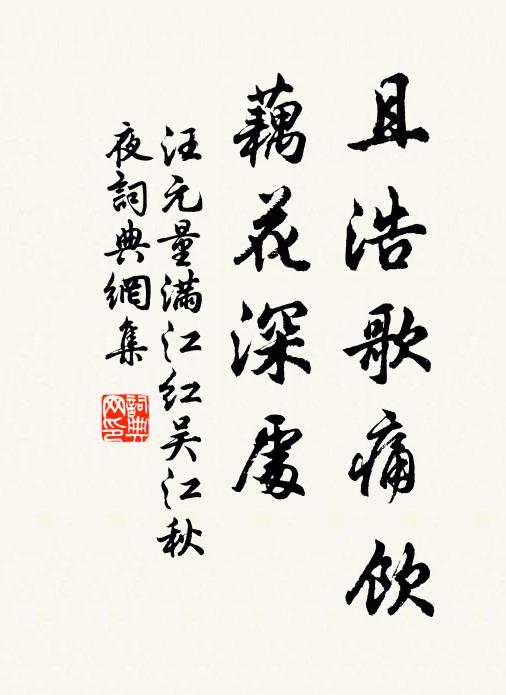 且浩歌痛飲
藕花深處
汪元量滿江紅吴江秋
夜詞典網集
詞典
网印